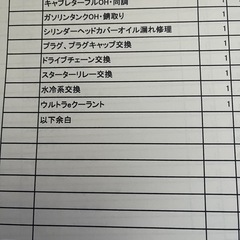 キャブレターフルOH・同調
ガソリンタンクOH・錆取り 1
シリンダーヘッドカバーオイル漏れ修理 1
プラグ、プラグキャップ交換 1
ドライブチェーン交換 1
スターターリレー交換 1
水冷系交換 1
ウルトラeクーラント 1
以下余白